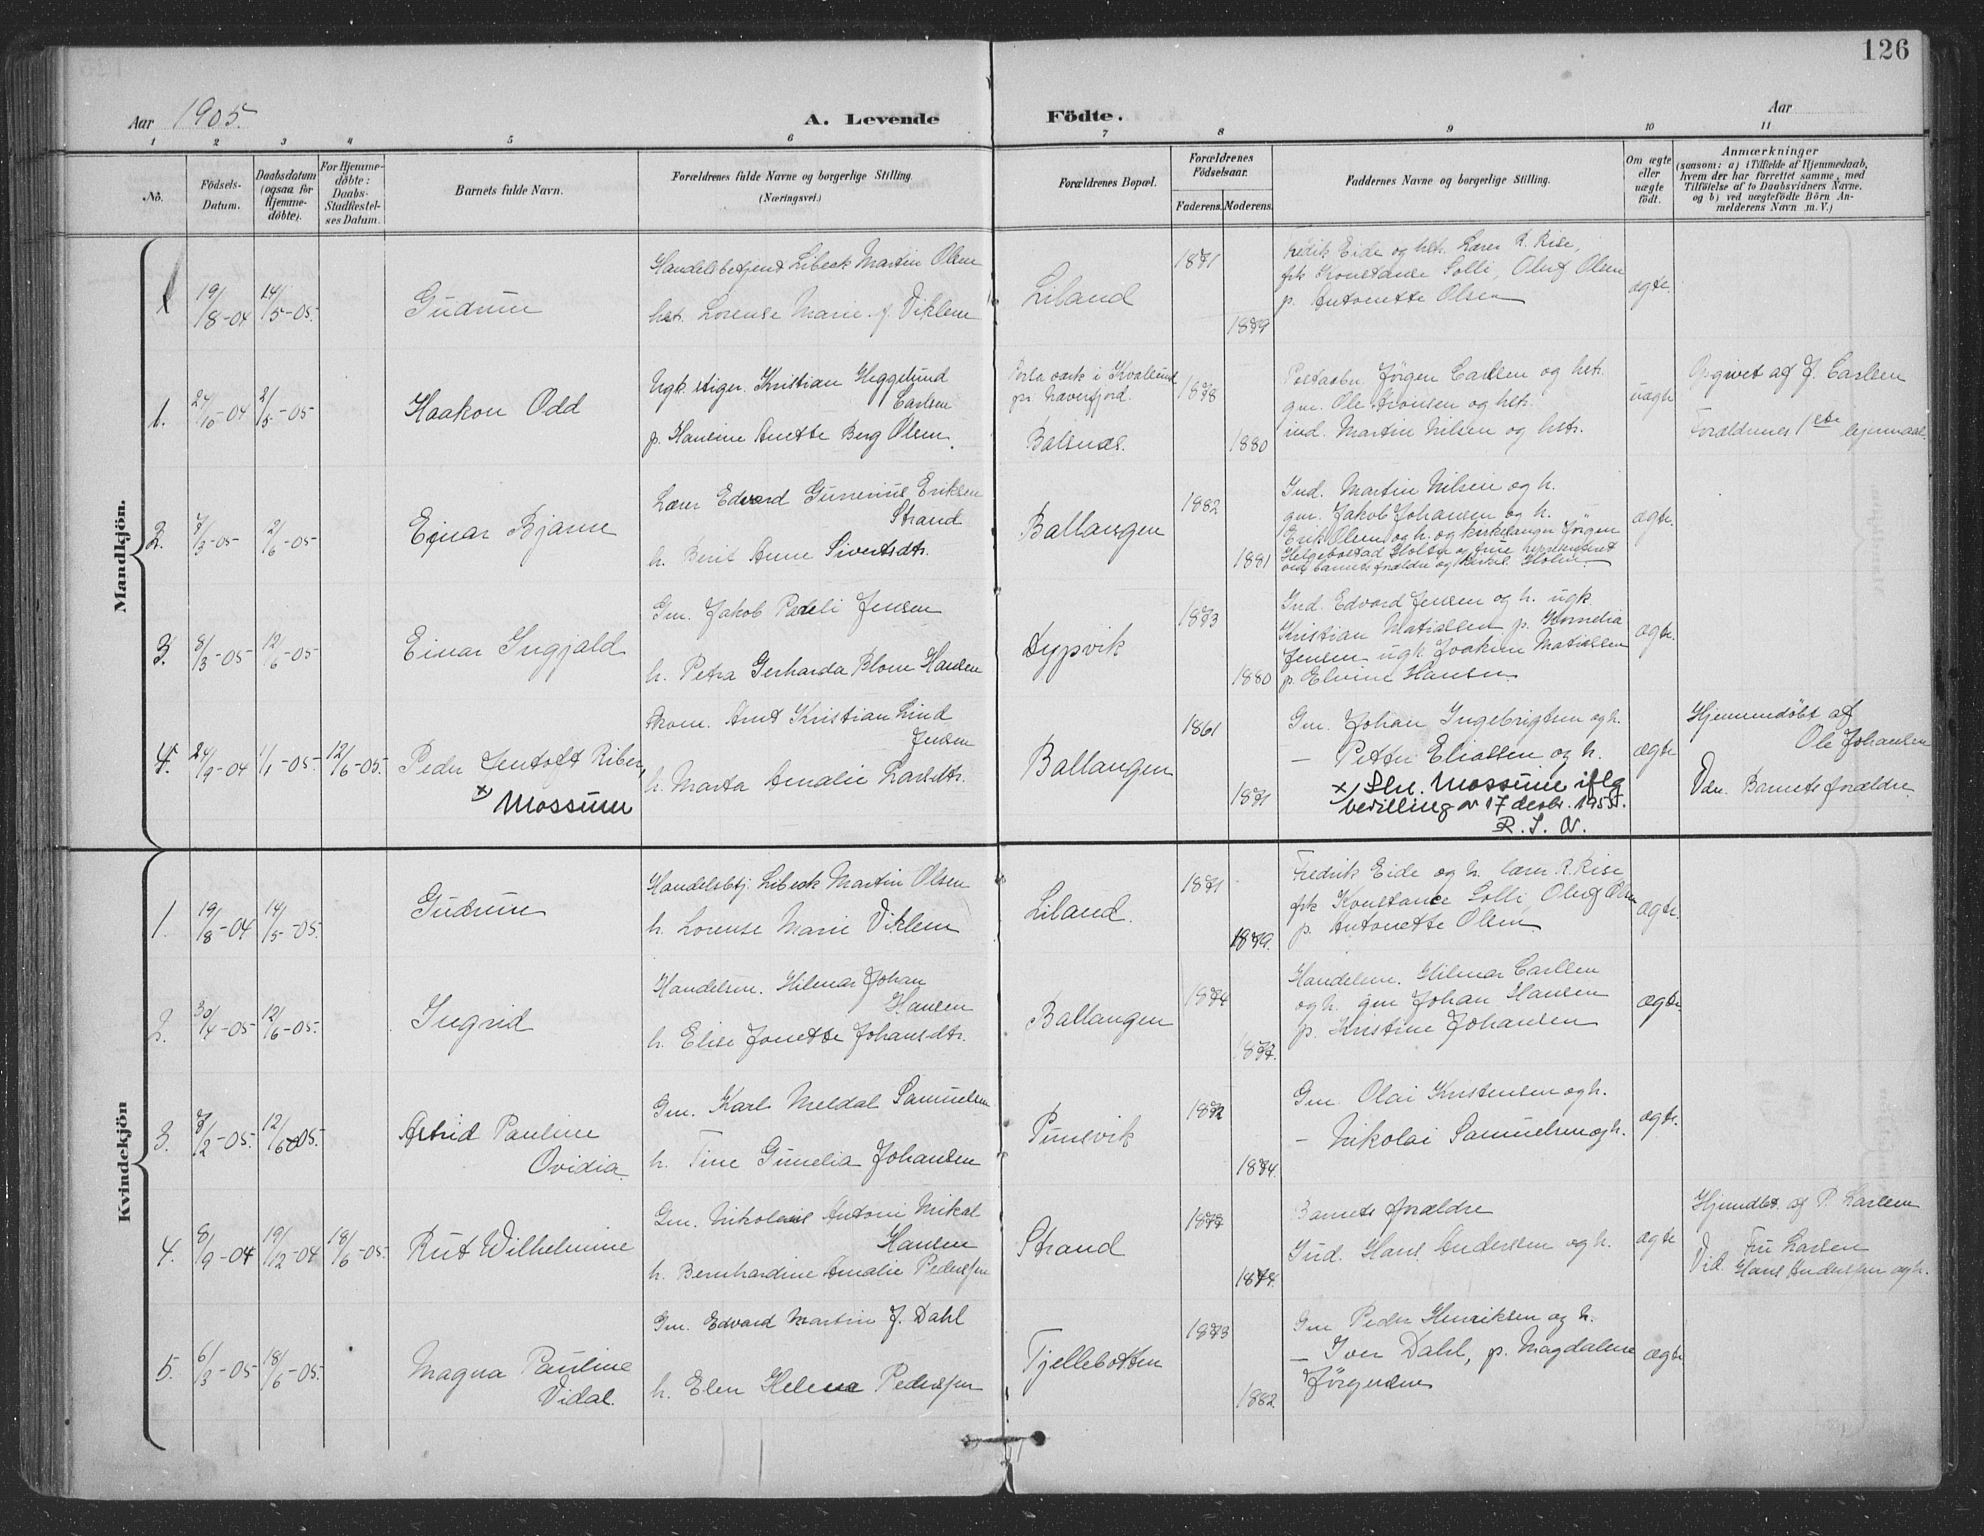 126
Aar 1905.
A. Levende Födte.
Aar
1 2 3 4 5 6 7 8 9 10 11
No.
Födsels-Datum.
Daabsdatum (ogsaa for Hjemme-döbte).
For Hjemme-döbte: Daabs Stadfæstel-ses Datum.
Barnets fulde Navn.
Forældrenes fulde Navne og borgerlige Stilling.
(Næringsvei.)
Forældrenes Bopæl.
Forældrenes Födselsaar.
Faderens. Moderens.
Faddernes Navne og borgerlige Stilling.
Om ægte eller uægte födt.
Anmærkninger
(saasom: a) i Tilfælde af Hjemmedaab, hvem der har forrettet samme, med Tilföielse af to Daabsvidners Navne, og b) ved uægtefödte Börn An-melderens Navn m. V.)
Mandkjön.
1 19/8-04 14/5-05. Gudrun
Handelsbetjent Libeck Martin Olsen
hst. Lorense Marie f. Viklem
Liland 1871 1879
Fredik Eide og hst. Lærer R. Rise,
frk Konstanse Solli, Oluf Olsen
p. Antonette Olsen
ægte.
1. 24/10-04 2/5-05 Haakon Odd
Ugk stiger Kristian Heggelund
Carlsen
p. Hansine Anette Berg Olsen.
Porsa værk i Kvalsund
pr. Naverfjord.
Balsnæs.
1878 1880
Postaabn. Jørgen Carlsen og hst.
gm. Ole Aronsen og hst.
ind. Martin Nilsen og hst.
uægte
Opgivet af J. Carlsen
Forældrenes 1ste lejermaal.
2. 7/3-05 2/6-05 Einar Bjarne
Lærer Edvard Gunerius Eriksen
Strand
h. Berit Anne Sivertsdtr.
Ballangen 1882 1881
Ind. Martin Nilsen og h.
gm. Jakob Johansen og h.
Erik Olsen og h. og kirkesanger Jørgen
Helgebostad Holten og frue representeret
ved barnets forældre og Holm
ægte.
3. 8/3-05 12/6-05 Einar Ingjald
Gm. Jakob Pareli Jensen
h. Petra Gerharda Blom Hansen
Dypvik 1873 1880
Ind. Edvard Jensen og h. ugk
Kristian Matiassen p. Kornelia
Jensen ugk. Joakim Matiassen
p. Elvine Hansen
ægte.
4. 24/9-04 1/1-05. 12/6-05. Peder Jentoft Riber,
x) Mossum
Skom. Arnt Kristian Lind
Jensen
h. Marta Amalie Larsdtr.
Ballangen 1861 1871
Gm. Johan Ingebrigtsen og h.
— Petter Eliassen og h.
x) Sln. Mossum iflg
bevilling av 17 desbr. 1955.
R. S. N.
ægte
Hjemmedøbt af
Ole Johansen
Vdn. Barnets forældre.
Kvindekjön
1. 19/8-04 14/5-05. Gudrun
Handelsbtj. Libeck Martin Olsen
h. Lorense Marie Viklem
Liland. 1871 1879.
Fredrik Eide og h. lærer R. Rise
frk Konstance Solli, Oluf Olsen
p. Antonette Olsen
ægte.
2. 30/4-05 12/6-05. Ingrid
Handelsm. Hilmar Johan
Hansen
h. Elise Jonette Johansdtr.
Ballangen 1874 1877.
Handelsm. Hilmar Carlsen
og h. gm Johan Hansen
p. Kristine Johansen
ægte.
3. 7/12-05 12/6-05. Astrid Pauline
Ovidia.
Gm. Karl Meldal Samuelsen
h. Tine Gunelia Johansen
Punsvik 1872 1874.
Gm. Olai Kristensen og h.
— Nikolai Samuelsen og h.
ægte.
4. 8/9-04 19/12-04 18/6-05. Rut Wilhelmine
Gm. Nikolaus Antoni Mikal
Hansen
h. Bernhardine Amalie Pederssen
Strand 1877 1874.
Barnets forældre
Ind. Hans Anderssen og h.
ægte
Hjemdbt. af P. Larsen
Fru Larsen
Vid. Hans Anderssen og h.
5. 6/3-05 18/6-05. Magna Pauline
Vidal.
Gm. Edvard Martin J. Dahl
h. Elen Helena Pederssen
Tjellebotten 1873 1882
Gm Peder Henriksen og h.
— Iver Dahl, p. Magdalene
Jørgensen
ægte